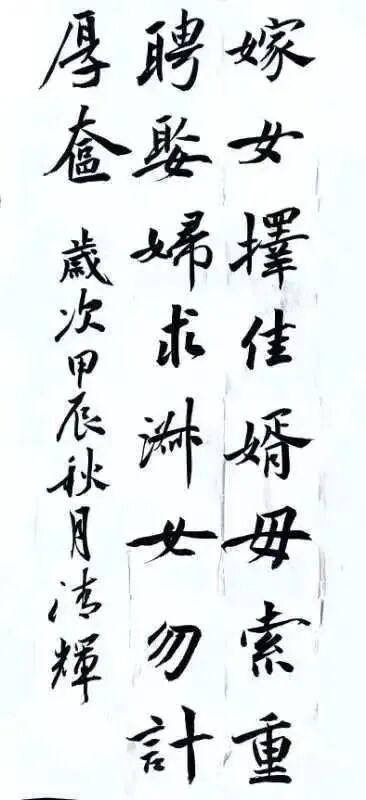 嫁女擇佳婿毋索重
聘娶婦求淑女勿計
厚奩
歲次甲辰秋月清輝